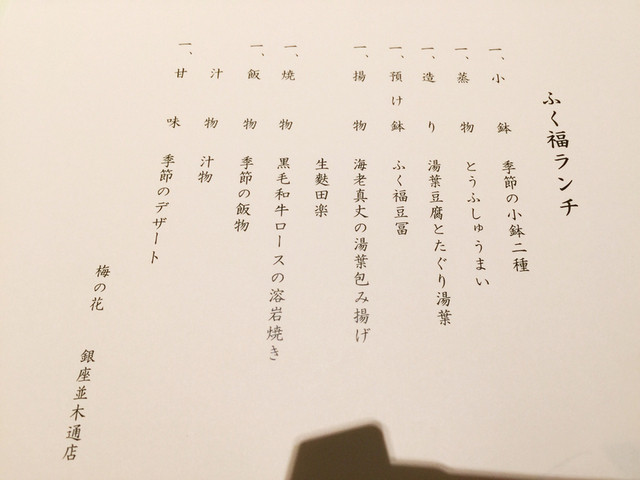 ふく福ランチ
一、小鉢 季節の小鉢二種
一、蒸物 とうふしゅうまい
一、造り 湯葉豆腐とたぐり湯葉
一、預け鉢 ふく福豆冨
一、揚物 海老真丈の湯葉包み揚げ
生麩田楽
一、焼物 黒毛和牛ロースの溶岩焼き
一、飯物 季節の飯物
汁物 汁物
一、甘味 季節のデザート
梅の花 銀座並木通店